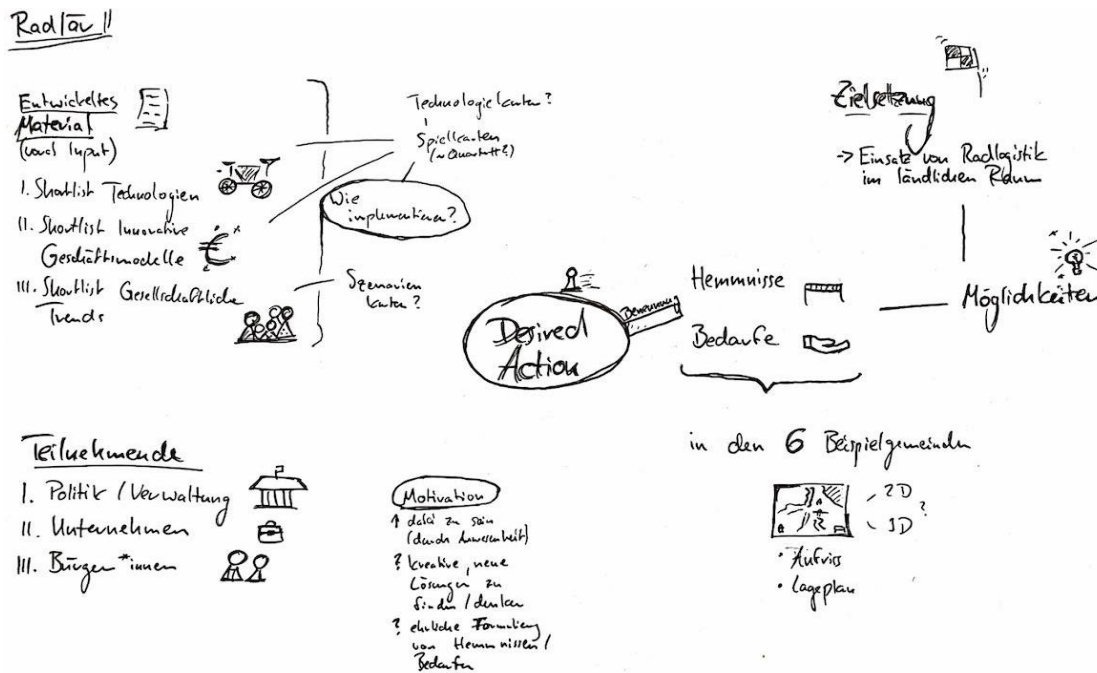 RadLäR II
Entwickeltes
Material
(vorab Input)
I. Shortlist Technologien
II. Shortlist Innovative
Geschäftsmodelle
III. Shortlist Gesellschaftliche
Trends
Technologiekarten?
Spielkarten
(~ Quartett?)
Wie
implementieren?
Szenarien
karten?
Desired
Action
Hemmnisse
Bedarfe
Zielsetzung
-> Einsatz von Radlogistik
im ländlichen Raum
Möglichkeiten
in den 6 Beispielgemeinden
2D
3D
?
• Aufriss
• Lageplan
Teilnehmende
I. Politik / Verwaltung
II. Unternehmen
III. Bürger*innen
Motivation
↑ dabei zu sein
(durch Anwesenheit)
? kreative, neue
Lösungen zu
finden / denken
? ehrliche
von Hemmnissen /
Bedarfen